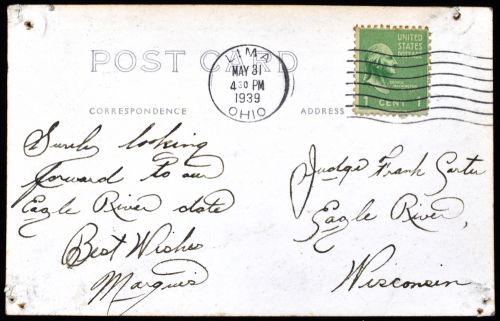 POST CARD
LIMA
MAY 31
4 30 PM
1939
OHIO
UNITED
STATES
POSTAGE
1 CENT 1
CORRESPONDENCE
ADDRESS
Surely looking
forward to our
Eagle River date
Best Wishes
Marquis
Judge Frank Carter
Eagle River,
Wisconsin